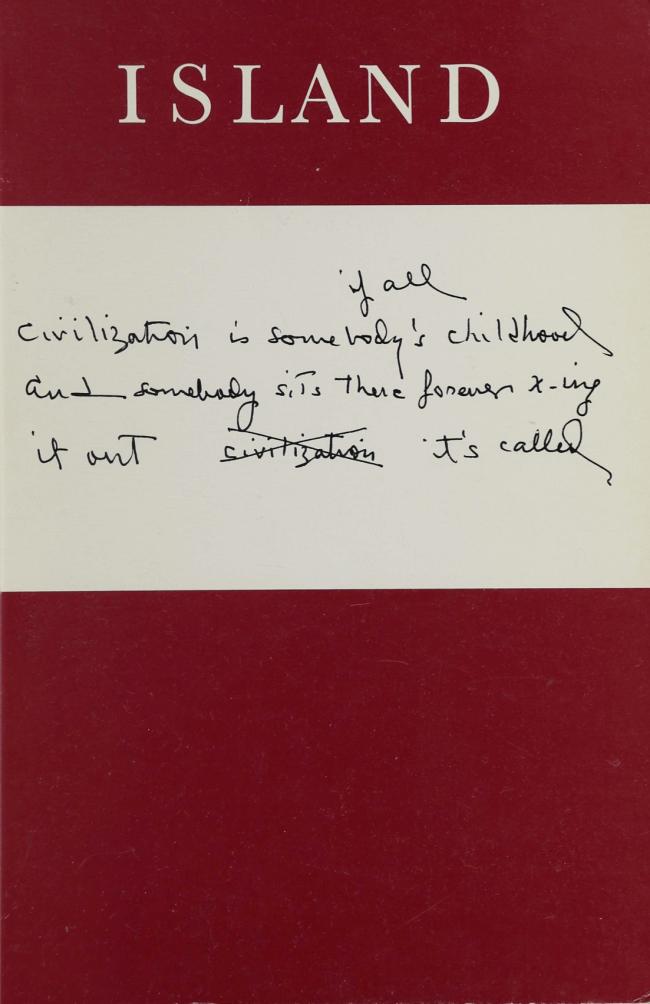 ISLAND
if all
civilization is somebody's childhood
and somebody sits there forever x-ing
it out civilization it's called